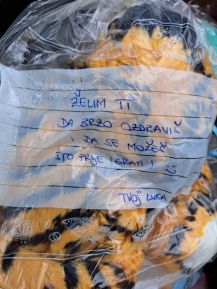 ŽELIM TI
DA BRZO OZDRAVIŠ
I DA SE MOŽEŠ
ŠTO PRIJE IGRATI! :)
TVOJ LUKA